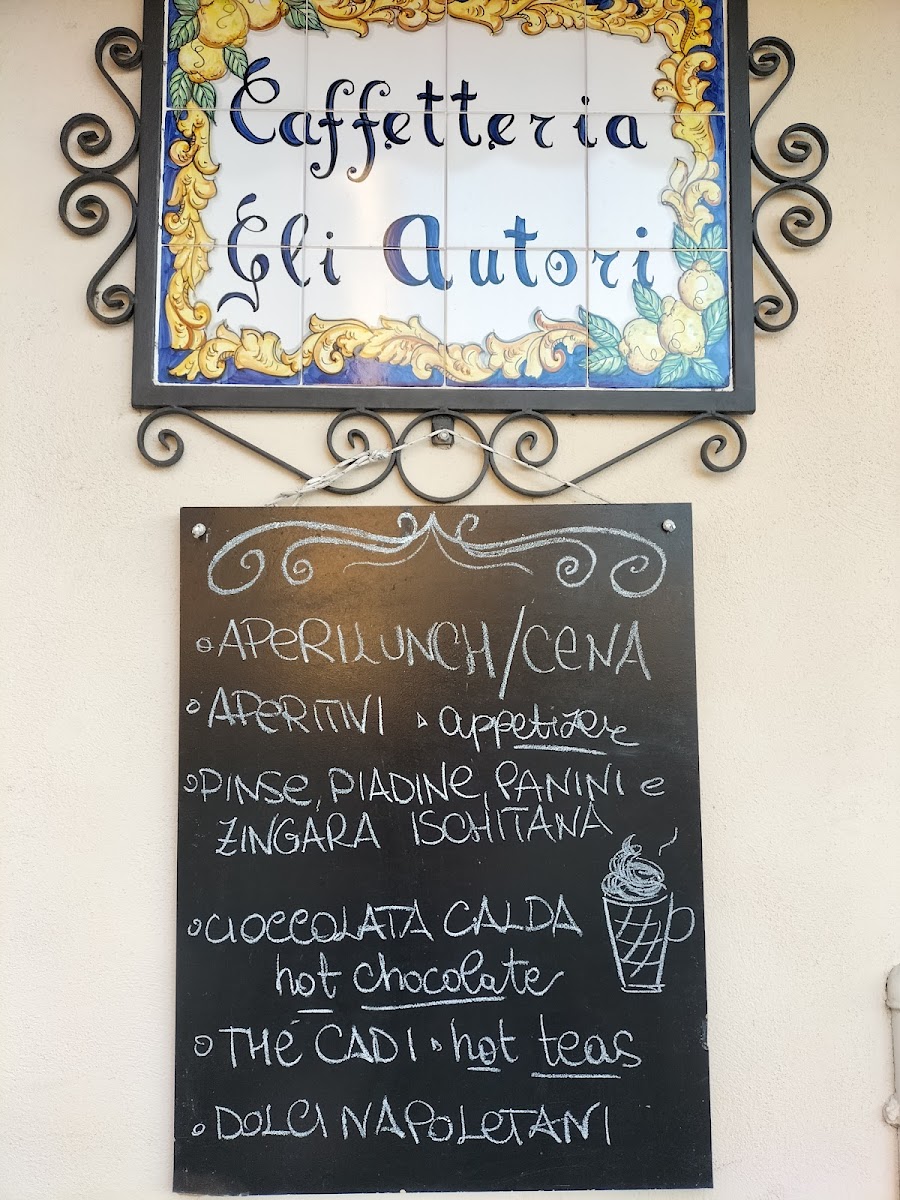 Caffetteria
Gli Autori
APERILUNCH/CENA
APERITIVI appetizer
PINSE, PIADINE, PANINI e
ZINGARA ISCHITANA
CIOCCOLATA CALDA
hot chocolate
THÉ CADI hot teas
DOLCI NAPOLETANI